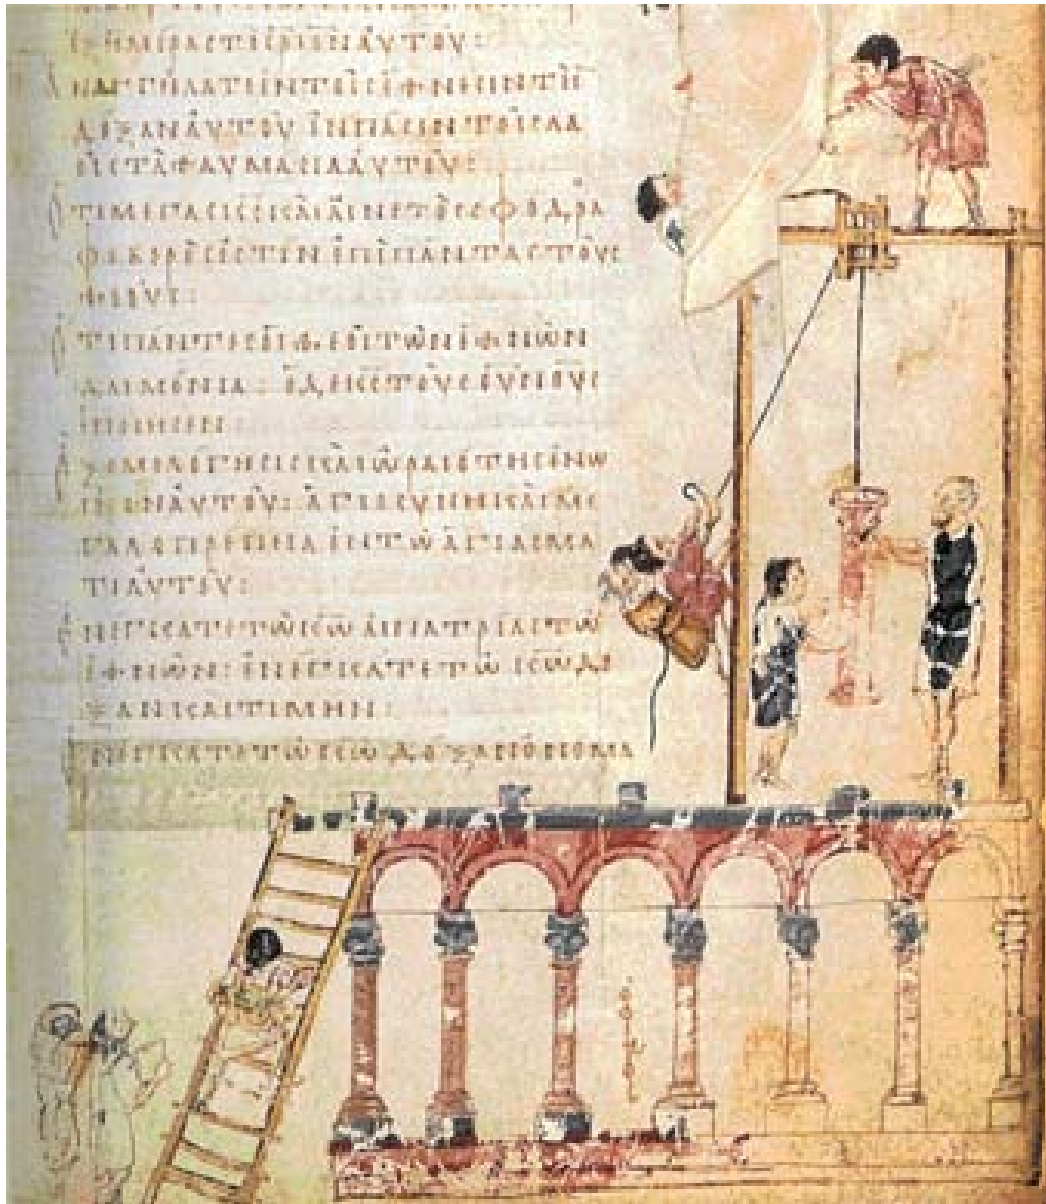 ΗΜΕΡΑC ΤΟ CΩΤΗΡΙΟΝ ΑΥΤΟΥ:
ΑΝΑΓΓΙΛΑΤΕ ΕΝ ΤΟΙC ΕΘΝΕCΙΝ ΤΗ
ΔΟΞΑΝ ΑΥΤΟΥ ΕΝ ΠΑCΙΝ ΤΟΙC ΛΑ
ΟΙC ΤΑ ΘΑΥΜΑCΙΑ ΑΥΤΟΥ:
ΟΤΙ ΜΕΓΑC ΚC ΚΑΙ ΑΙΝΕΤΟC CΦΟΔΡΑ
ΦΟΒΕΡΟC ΕCΤΙΝ ΕΠΙ ΠΑΝΤΑC ΤΟΥC
ΘΕΟΥC:
ΟΤΙ ΠΑΝΤΕC ΟΙ ΘΕΟΙ ΤΩΝ ΕΘΝΩΝ
ΔΑΙΜΟΝΙΑ: Ο ΔΕ ΚC ΤΟΥC ΟΥΝΟΥC
ΕΠΟΙΗCΕΝ
ΕΞΟΜΟΛΟΓΗCΙC ΚΑΙ ΩΡΑΙΟΤΗC ΕΝΩ
ΠΙΟΝ ΑΥΤΟΥ: ΑΓΙΟCΥΝΗ ΚΑΙ ΜΕ
ΓΑΛΟΠΡΕΠΙΑ ΕΝ ΤΩ ΑΓΙΑCΜΑ
ΤΙ ΑΥΤΟΥ:
ΕΝΕΓΚΑΤΕ ΤΩ ΚΩ ΑΙ ΠΑΤΡΙΑΙ ΤΩ
ΕΘΝΩΝ: ΕΝΕΓΚΑΤΕ ΤΩ ΚΩ ΔΟ
ΞΑΝ ΚΑΙ ΤΙΜΗΝ:
ΕΝΕΓΚΑΤΕ ΤΩ ΚΩ ΔΟΞΑΝ ΟΝΟΜΑ